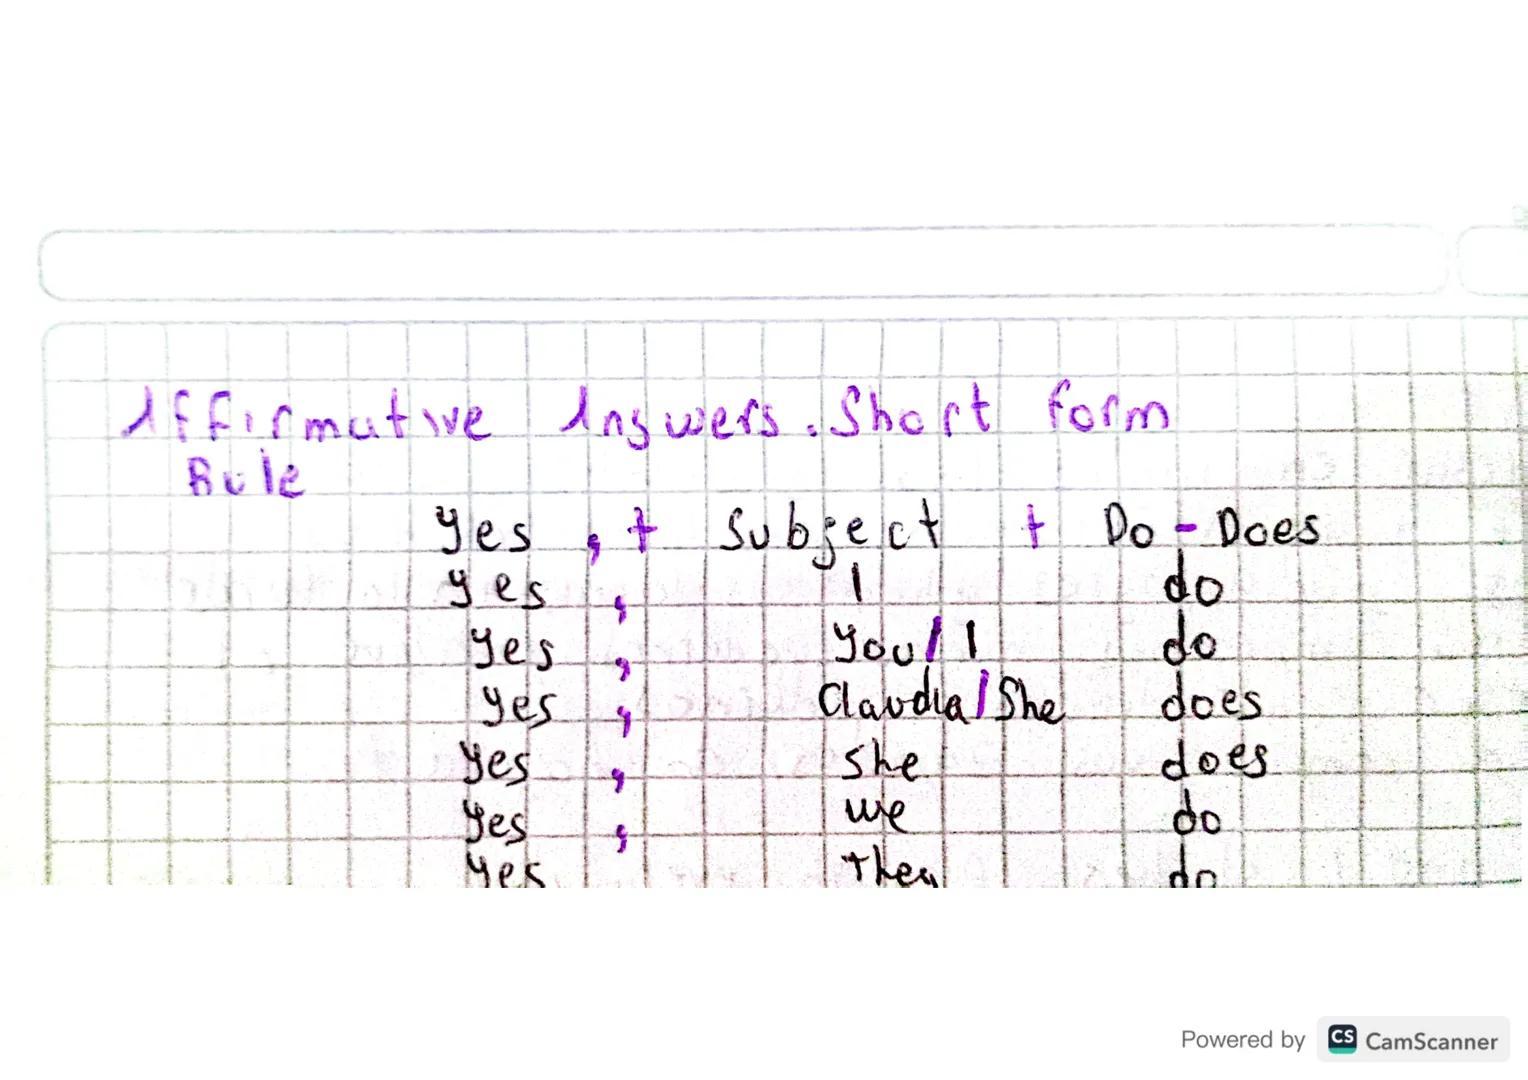 Affirmative Answers. Short form
Rule
Yes , + Subject + Do - Does
yes , I do
Yes , You / I do
Yes , Claudia / She does
Yes , she does
Yes , we do
Yes they do
Powered by CS CamScanner